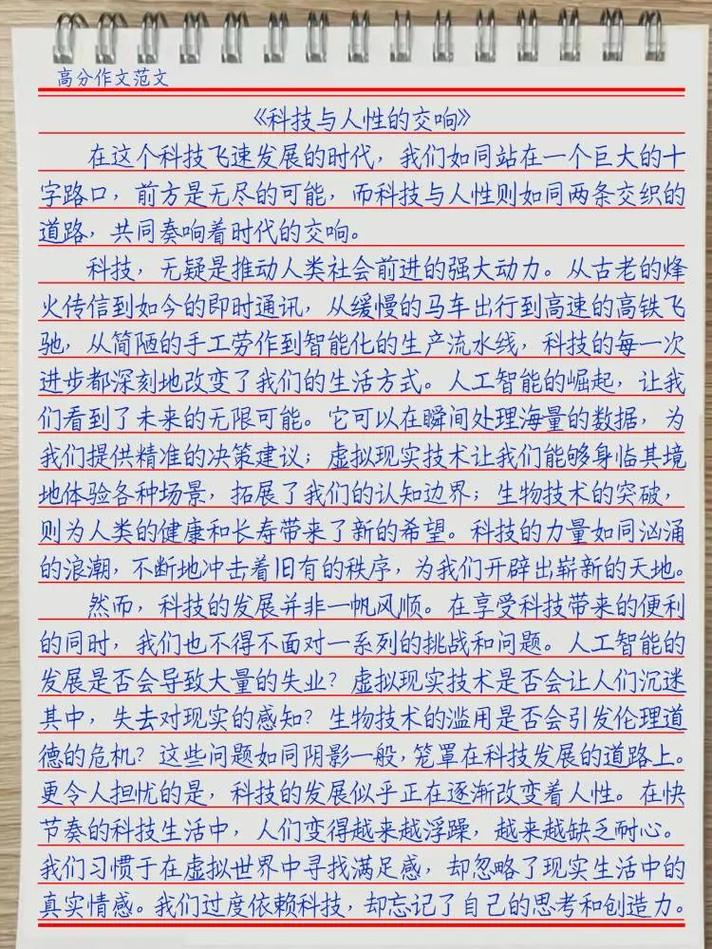 高分作文范文
《科技与人性的交响》
在这个科技飞速发展的时代，我们如同站在一个巨大的十
字路口，前方是无尽的可能，而科技与人性则如同两条交织的
道路，共同奏响着时代的交响。
科技，无疑是推动人类社会前进的强大动力。从古老的烽
火传信到如今的即时通讯，从缓慢的马车出行到高速的高铁飞
驰，从简陋的手工劳作到智能化的生产流水线，科技的每一次
进步都深刻地改变了我们的生活方式。人工智能的崛起，让我
们看到了未来的无限可能。它可以在瞬间处理海量的数据，为
我们提供精准的决策建议；虚拟现实技术让我们能够身临其境
地体验各种场景，拓展了我们的认知边界；生物技术的突破，
则为人类的健康和长寿带来了新的希望。科技的力量如同汹涌
的浪潮，不断地冲击着旧有的秩序，为我们开辟出崭新的天地。
然而，科技的发展并非一帆风顺。在享受科技带来的便利
的同时，我们也不得不面对一系列的挑战和问题。人工智能的
发展是否会导致大量的失业？虚拟现实技术是否会让人们沉迷
其中，失去对现实的感知？生物技术的滥用是否会引发伦理道
德的危机？这些问题如同阴影一般，笼罩在科技发展的道路上。
更令人担忧的是，科技的发展似乎正在逐渐改变着人性。在快
节奏的科技生活中，人们变得越来越浮躁，越来越缺乏耐心。
我们习惯于在虚拟世界中寻找满足感，却忽略了现实生活中的
真实情感。我们过度依赖科技，却忘记了自己的思考和创造力。